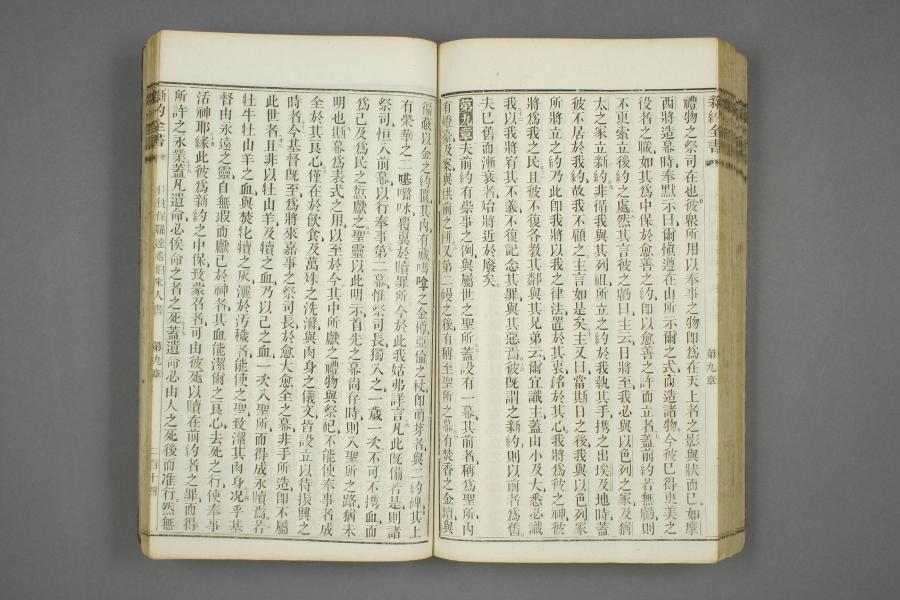 新約全書
第九章
禮物之祭司在也彼眾所用以奉事之物卽爲在天上者之影與狀而已如摩
西將造幕時奉默示曰爾愼遵在山所示爾之式而造諸物今彼已得更美之
役者之職如其爲中保於愈善之約卽以愈善之許而立者蓋前約若無勵則
不更索立後約之處然其言彼之勵曰主云日將至我必與以色列之家及猶
太之家立新約非循我與其列祖所立之約於我執其手攜之出埃及地時蓋
彼不居於我約故我不顧之主言如是矣主又曰當斯日之後我與以色列家
所將立之約乃此卽我將以我之律法置於其衷銘於其心我將爲彼之神彼
將爲我之民且彼不復各教其鄰與其兄弟云爾宜識主蓋由小及大悉必識
我以我將宥其不義不復記念其罪與其惡焉彼旣謂之新約則以前者爲舊
夫已舊而漸衰者殆將近於廢矣
第九章夫前約有崇事之例與屬世之聖所蓋設有一幕其前者稱爲聖所內
有燈臺及案與供前之餅又第二幔之後有稱至聖所之幕有焚香之金壇與
徧蔽以金之約匱其內有藏嗎嗱之金樽亞倫之杖卽萌芽者與二約碑其上
有榮華之二𠼻嚧咏覆翼於贖罪所今於此我姑弗詳言凡此旣備若是則諸
祭司恒入前幕以行奉事第二幕惟祭司長獨入之一歲一次不可不攜血而
爲己及爲民之愆獻之聖靈以此明示首先之幕尙存時則入聖所之路猶未
明也斯幕爲表式之用以至於今其中所獻之禮物與祭祀不能使奉事者成
全於其良心僅在於飲食及萬殊之洗滌與肉身之儀文皆設立以待振興之
時者今基督旣至爲將來嘉事之祭司長於愈大愈全之幕非手所造卽不屬
此世者且非以牡山羊及犢之血乃以己之血一次入聖所而得成永贖焉若
牡牛牡山羊之血與焚牝犢之灰灑於汚穢者能使之聖致潔其肉身況乎基
督由永遠之靈自無瑕而獻己於神者其血能潔爾之良心去死之行使奉事
活神耶緣此彼爲新約之中保致蒙召者可由彼死以贖在前約者之罪而得
所許之永業蓋凡遺命必俟命之者之死蓋遺命必由人之死後而准行然無
新約全書
使徒保羅達希伯來人書
第九章
二百十四